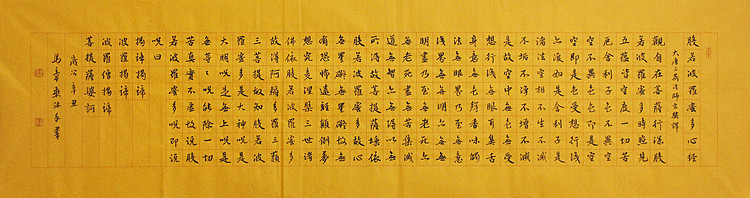 般若波羅蜜多心經
大唐三藏法師玄奘譯
觀自在菩薩行深般
若波羅蜜多時照見
五蘊皆空度一切苦
厄舍利子色不異空
空不異色色即是空
空即是色受想行識
亦復如是舍利子是
諸法空相不生不滅
不垢不淨不增不減
是故空中無色無受
想行識無眼耳鼻舌
身意無色聲香味觸
法無眼界乃至無意
識界無無明亦無無
明盡乃至無老死亦
無老死盡無苦集滅
道無智亦無得以無
所得故菩提薩埵依
般若波羅蜜多故心
無罣礙無罣礙故無
有恐怖遠離顛倒夢
想究竟涅槃三世諸
佛依般若波羅蜜多
故得阿耨多羅三藐
三菩提故知般若波
羅蜜多是大神咒是
大明咒是無上咒是
無等々咒能除一切
苦真實不虛故說般
若波羅蜜多咒即說
咒曰
揭諦揭諦
波羅揭諦
波羅僧揭諦
菩提薩婆訶
歲次辛丑
馬 沐手書